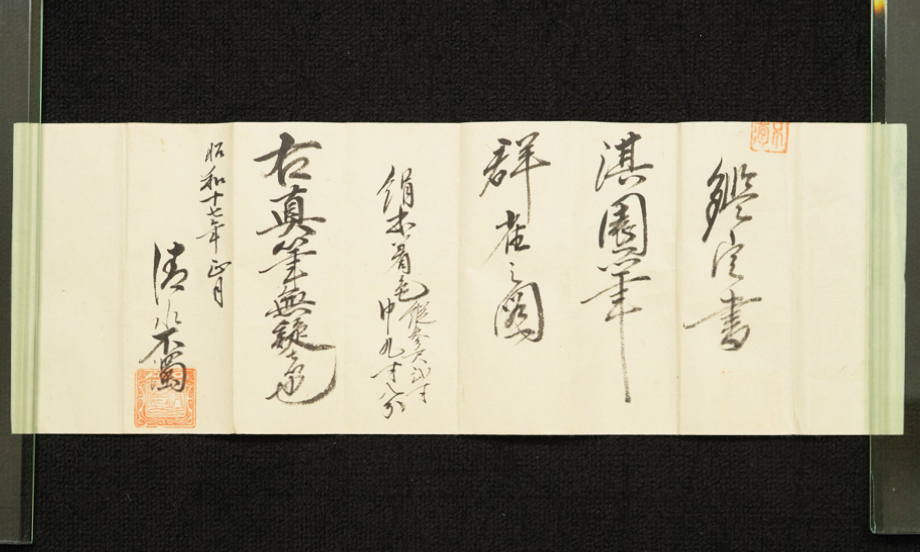 鑑定書
淇園筆
群雀之図
絹本着色 縦参尺弐寸
巾九寸八分
右真筆無疑者也
昭和十七年正月
清水不濁